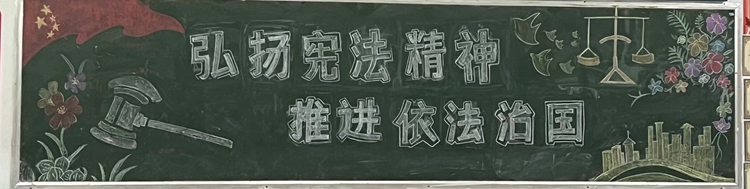 弘扬宪法精神
推进依法治国